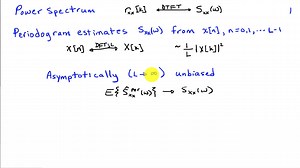 Power Spectrum rₓₓ[k] DTFT Sₓₓ(ω) 1
Periodogram estimates Sₓₓ(ω) from x[n], n=0,1,... L-1
x[n] DFT L X[k] ~ 1/L |X[k]|²
Asymptotically (L→∞) unbiased
E{Ŝₓₓᵖᵉʳ(ω)} → Sₓₓ(ω)